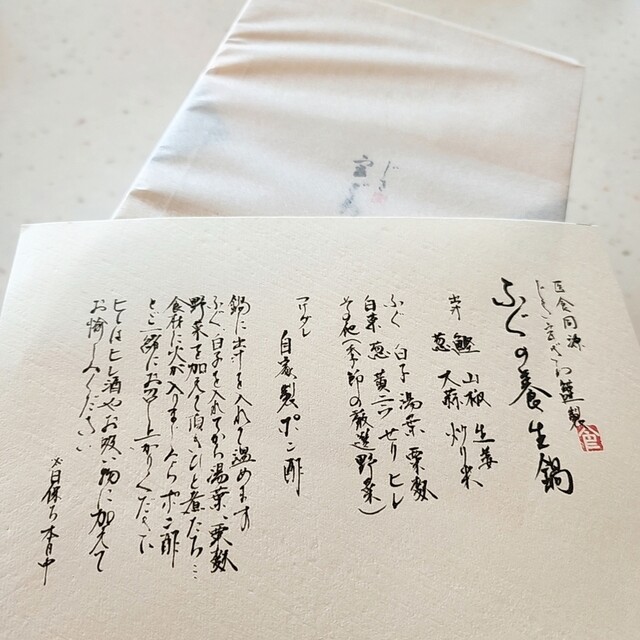 医食同源
じき宮ざわ謹製
ふぐの養生鍋
出汁 鰹 山椒 生姜
葱 大蒜 炒り米
ふぐ 白子 湯葉 粟麩
白菜 葱 黄ニラ せり ヒレ
その他(季節の厳選野菜)
自家製ポン酢
鍋に出汁を入れて温めます
ふぐ 白子を入れてから湯葉、粟麩
野菜を加えて頂きひと煮たち…
食材に火が入りましたらポン酢
とご一緒にお召し上がりください
ヒレはヒレ酒やお吸い物に加えて
お愉しみください
〆日保ち 本日中
じき
宮ざ